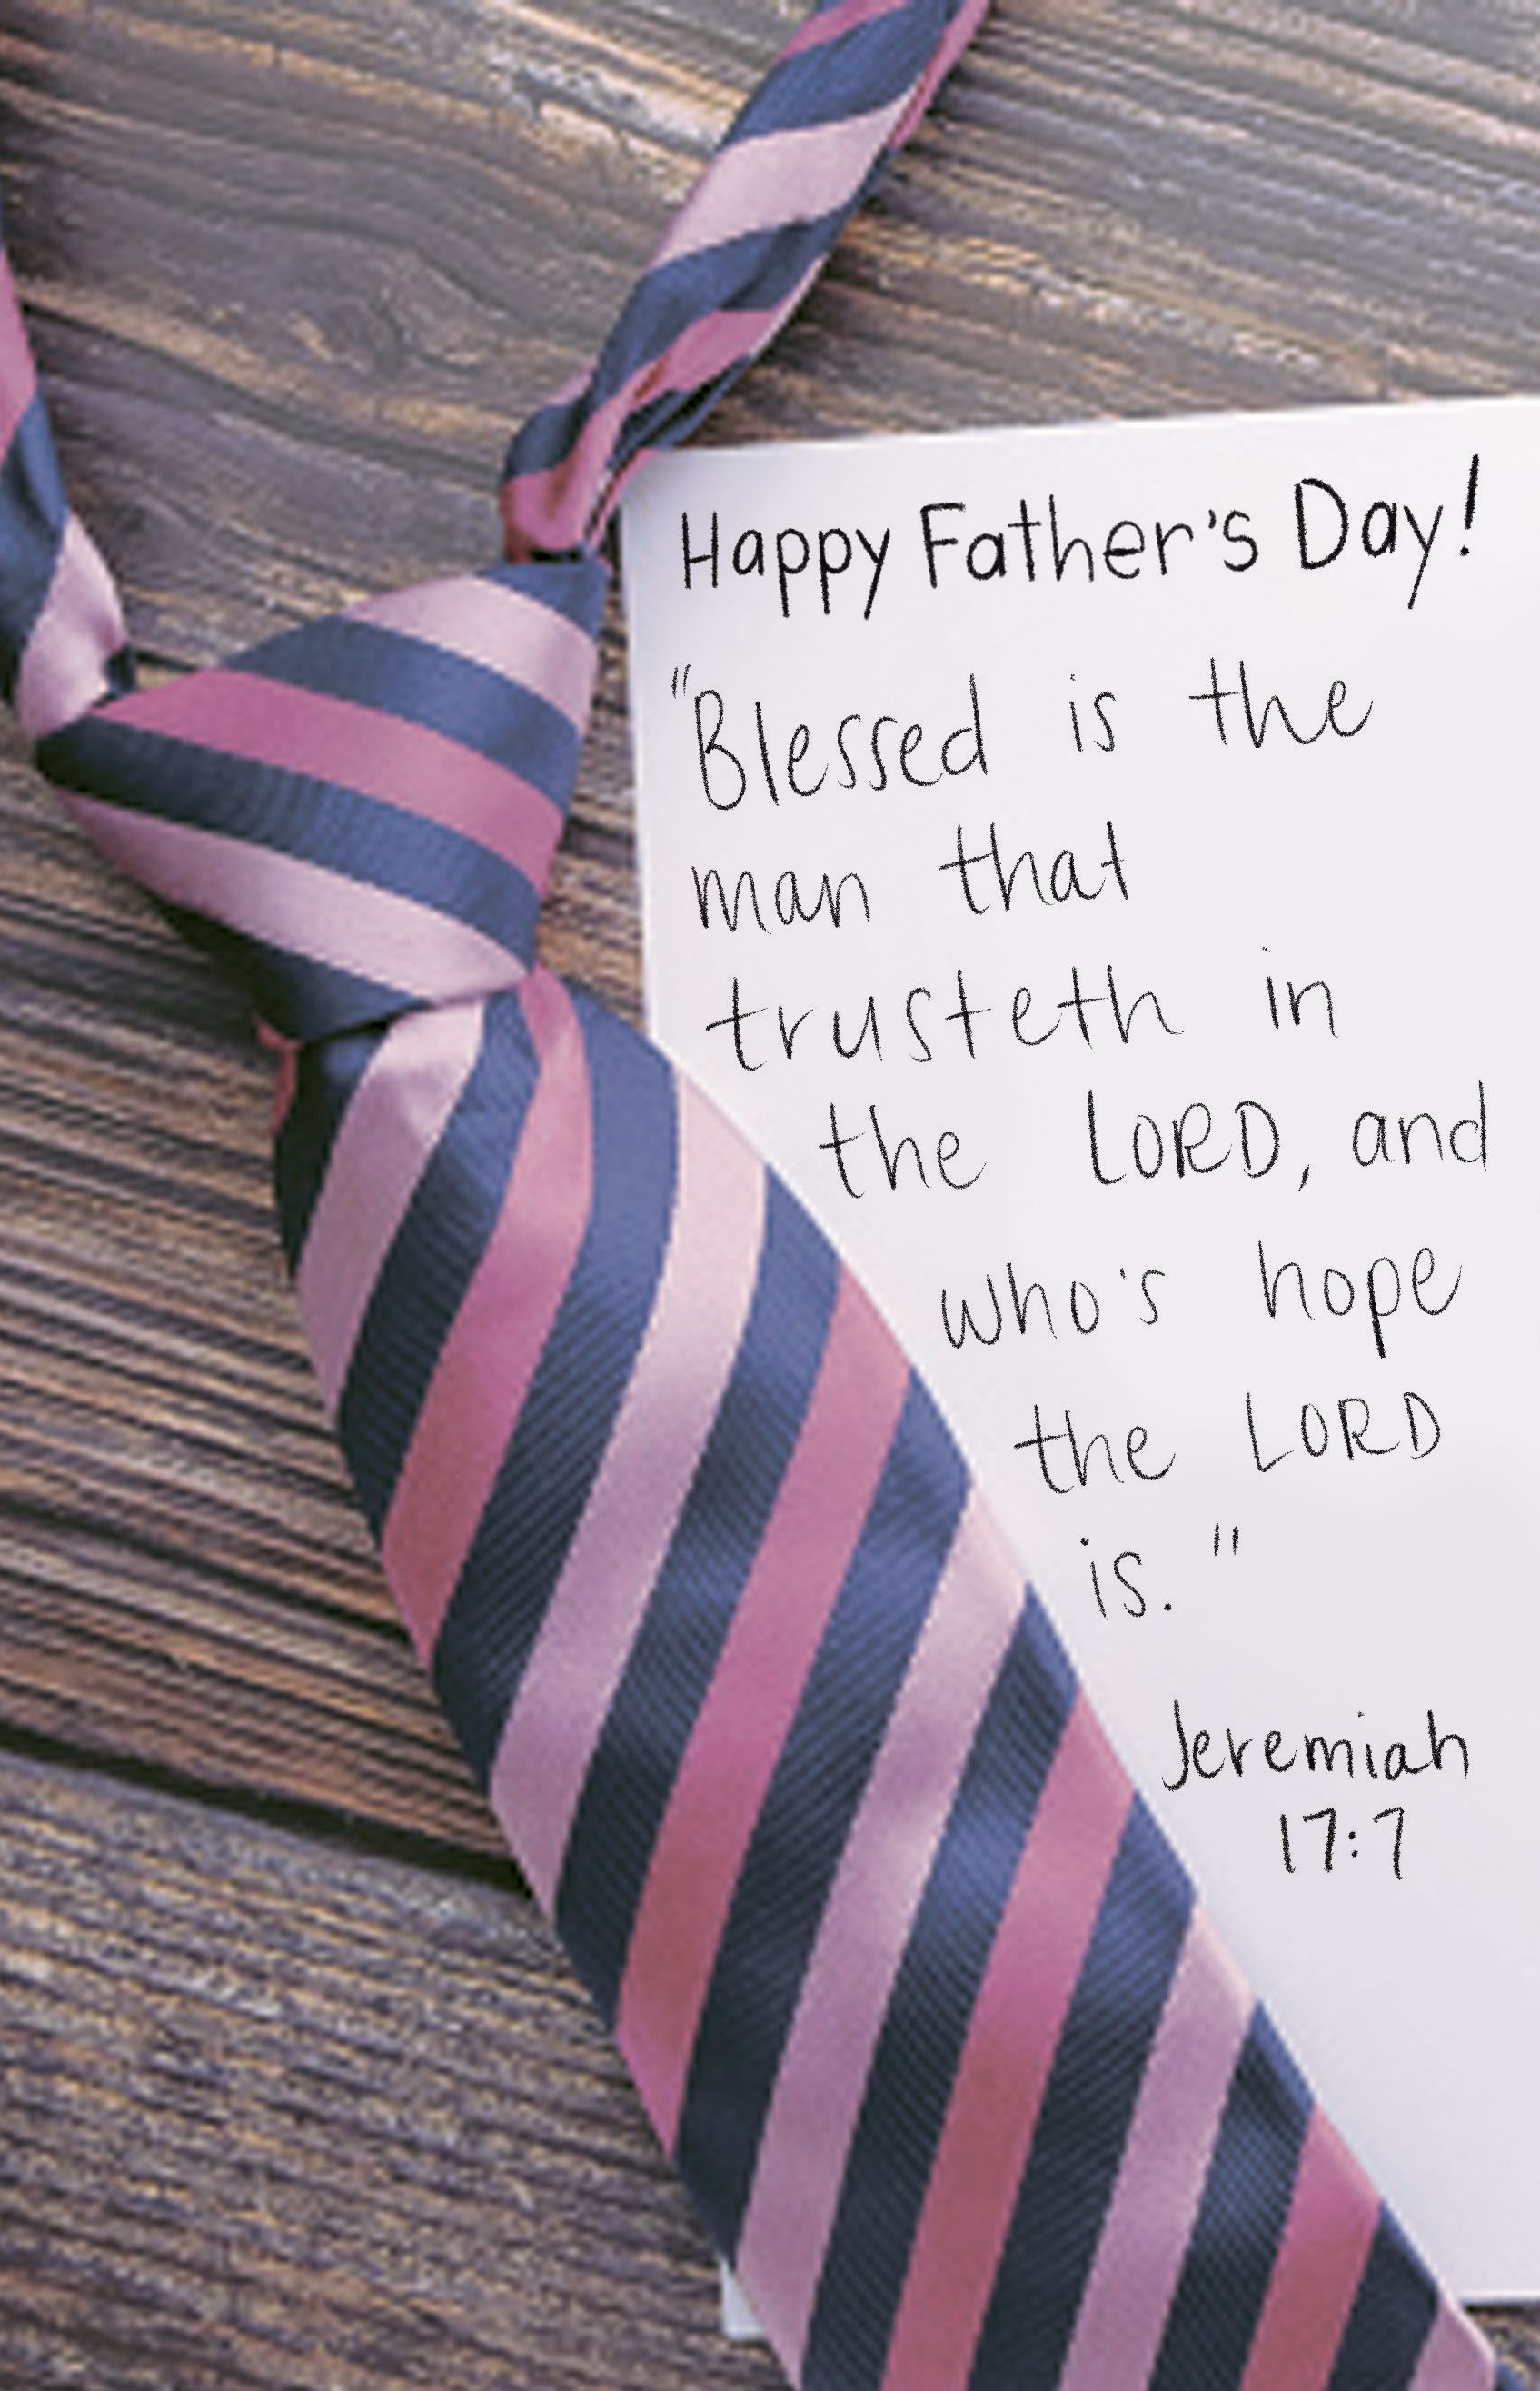 Happy Father's Day!
"Blessed is the
man that
trusteth in
the LORD, and
who's hope
the LORD
is."
Jeremiah
17:7